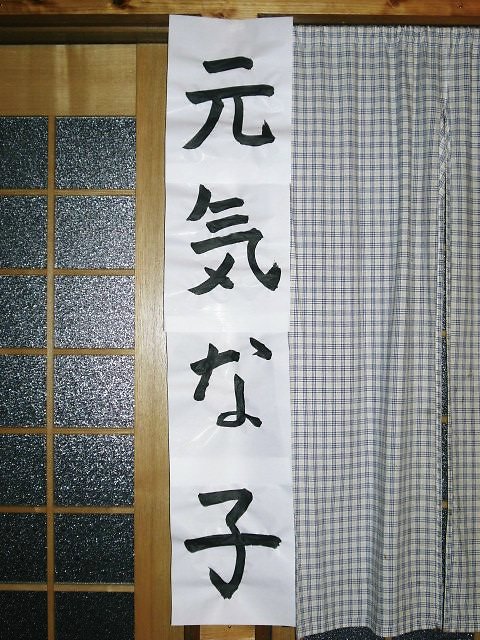 元気な子